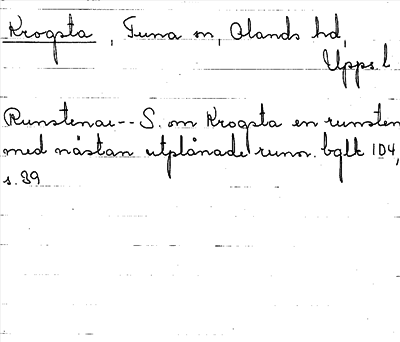 Krogsta, Tuna sn, Olands hd,
Upps. l
Runstenar-- S. om Krogsta en runsten
med nästan utplånade runor. bglt 104,
s. 39